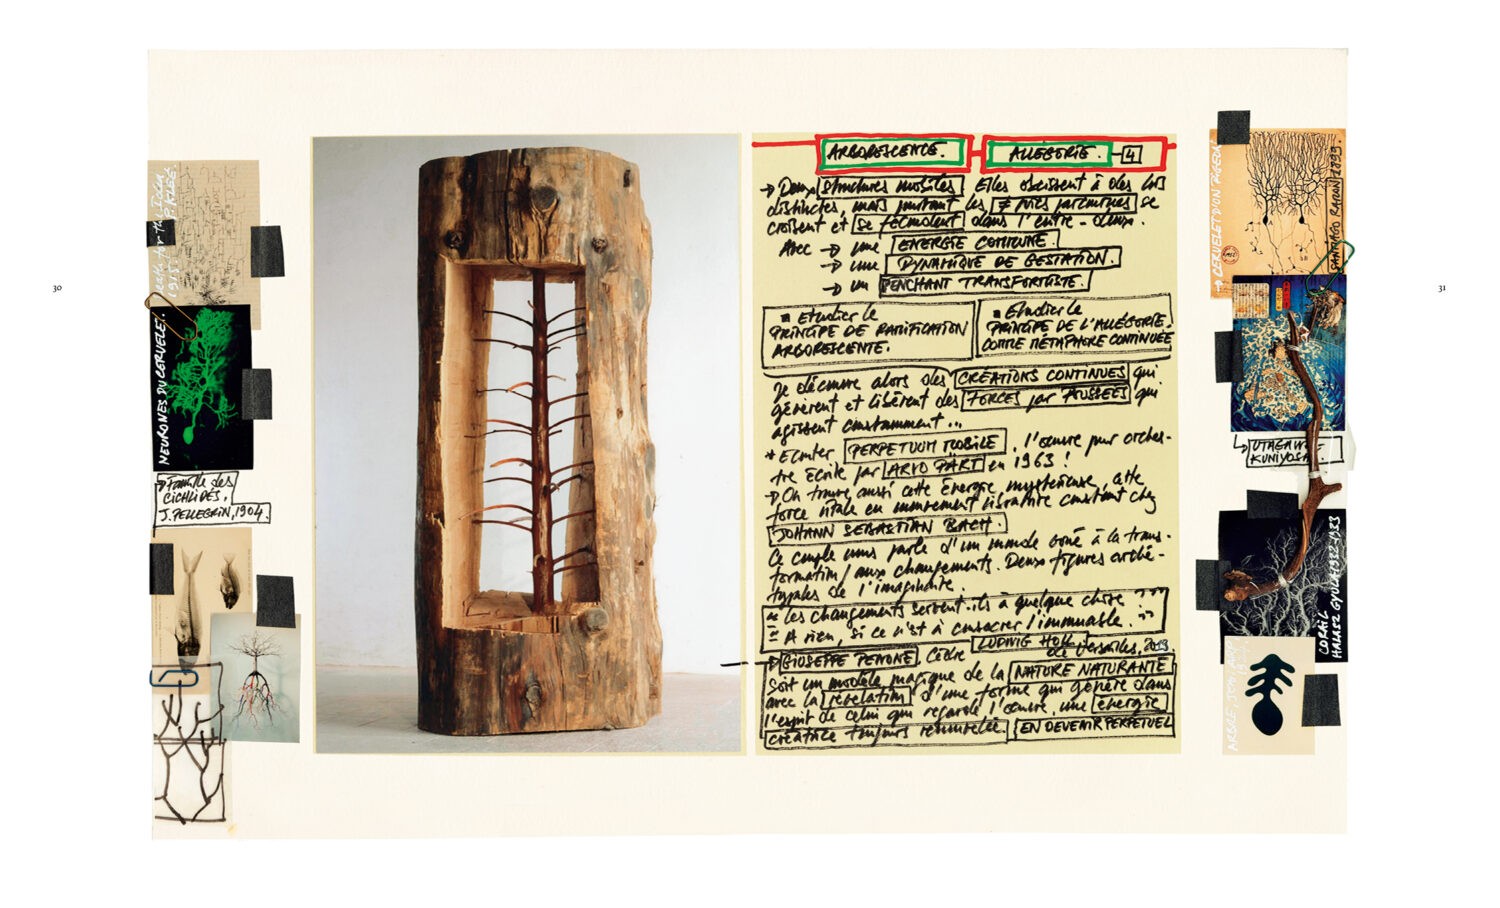 30
P. KLEE.
NEURONES DU CERVELET.
→ Famille des
CICHLIDÉS,
J. PELLEGRIN, 1904.
ARBORESCENCE. ALLÉGORIE. 4
→ Deux structures mobiles Elles obéissent à des lois
distinctes, mais pourtant les se
croisent et se fécondent dans l'entre-deux.
Avec → une ÉNERGIE COMMUNE.
→ une DYNAMIQUE DE GESTATION.
→ un PENCHANT TRANSFORMISTE.
▪ Étudier le
PRINCIPE DE RAMIFICATION
ARBORESCENTE.
▪ Étudier le
PRINCIPE DE L'ALLÉGORIE
COMME MÉTAPHORE CONTINUÉE
Je découvre alors des CRÉATIONS CONTINUES qui
génèrent et libèrent des FORCES par POUSSÉES qui
agissent constamment...
Écouter PERPETUUM MOBILE, l'œuvre pour orches-
tre écrite par ARVO PÄRT en 1963 !
→ On trouve aussi cette énergie mystérieuse, cette
force vitale en mouvement vibratoire constant chez
JOHANN SEBASTIAN BACH.
Ce couple nous parle d'un monde voué à la trans-
formation / aux changements. Deux figures arché-
types de l'imaginaire.
Les changements servent-ils à quelque chose ?
À rien, si ce n'est à consacrer l'immuable.
LUDWIG HOHL
→ GIUSEPPE PENONE, Cèdre de Versailles, 2003
Soit un modèle magique de la NATURE NATURANTE
avec la révélation d'une forme qui génère dans
l'esprit de celui qui regarde l'œuvre, une énergie
créatrice toujours renouvelée. EN DEVENIR PERPETUEL
→ CERVELET D'UN PIGEON
SANTIAGO RAMON 1899.
↳ UTAGAWA
KUNIYOSHI.
CORAIL
HALASZ GYULA 1932-1933
31